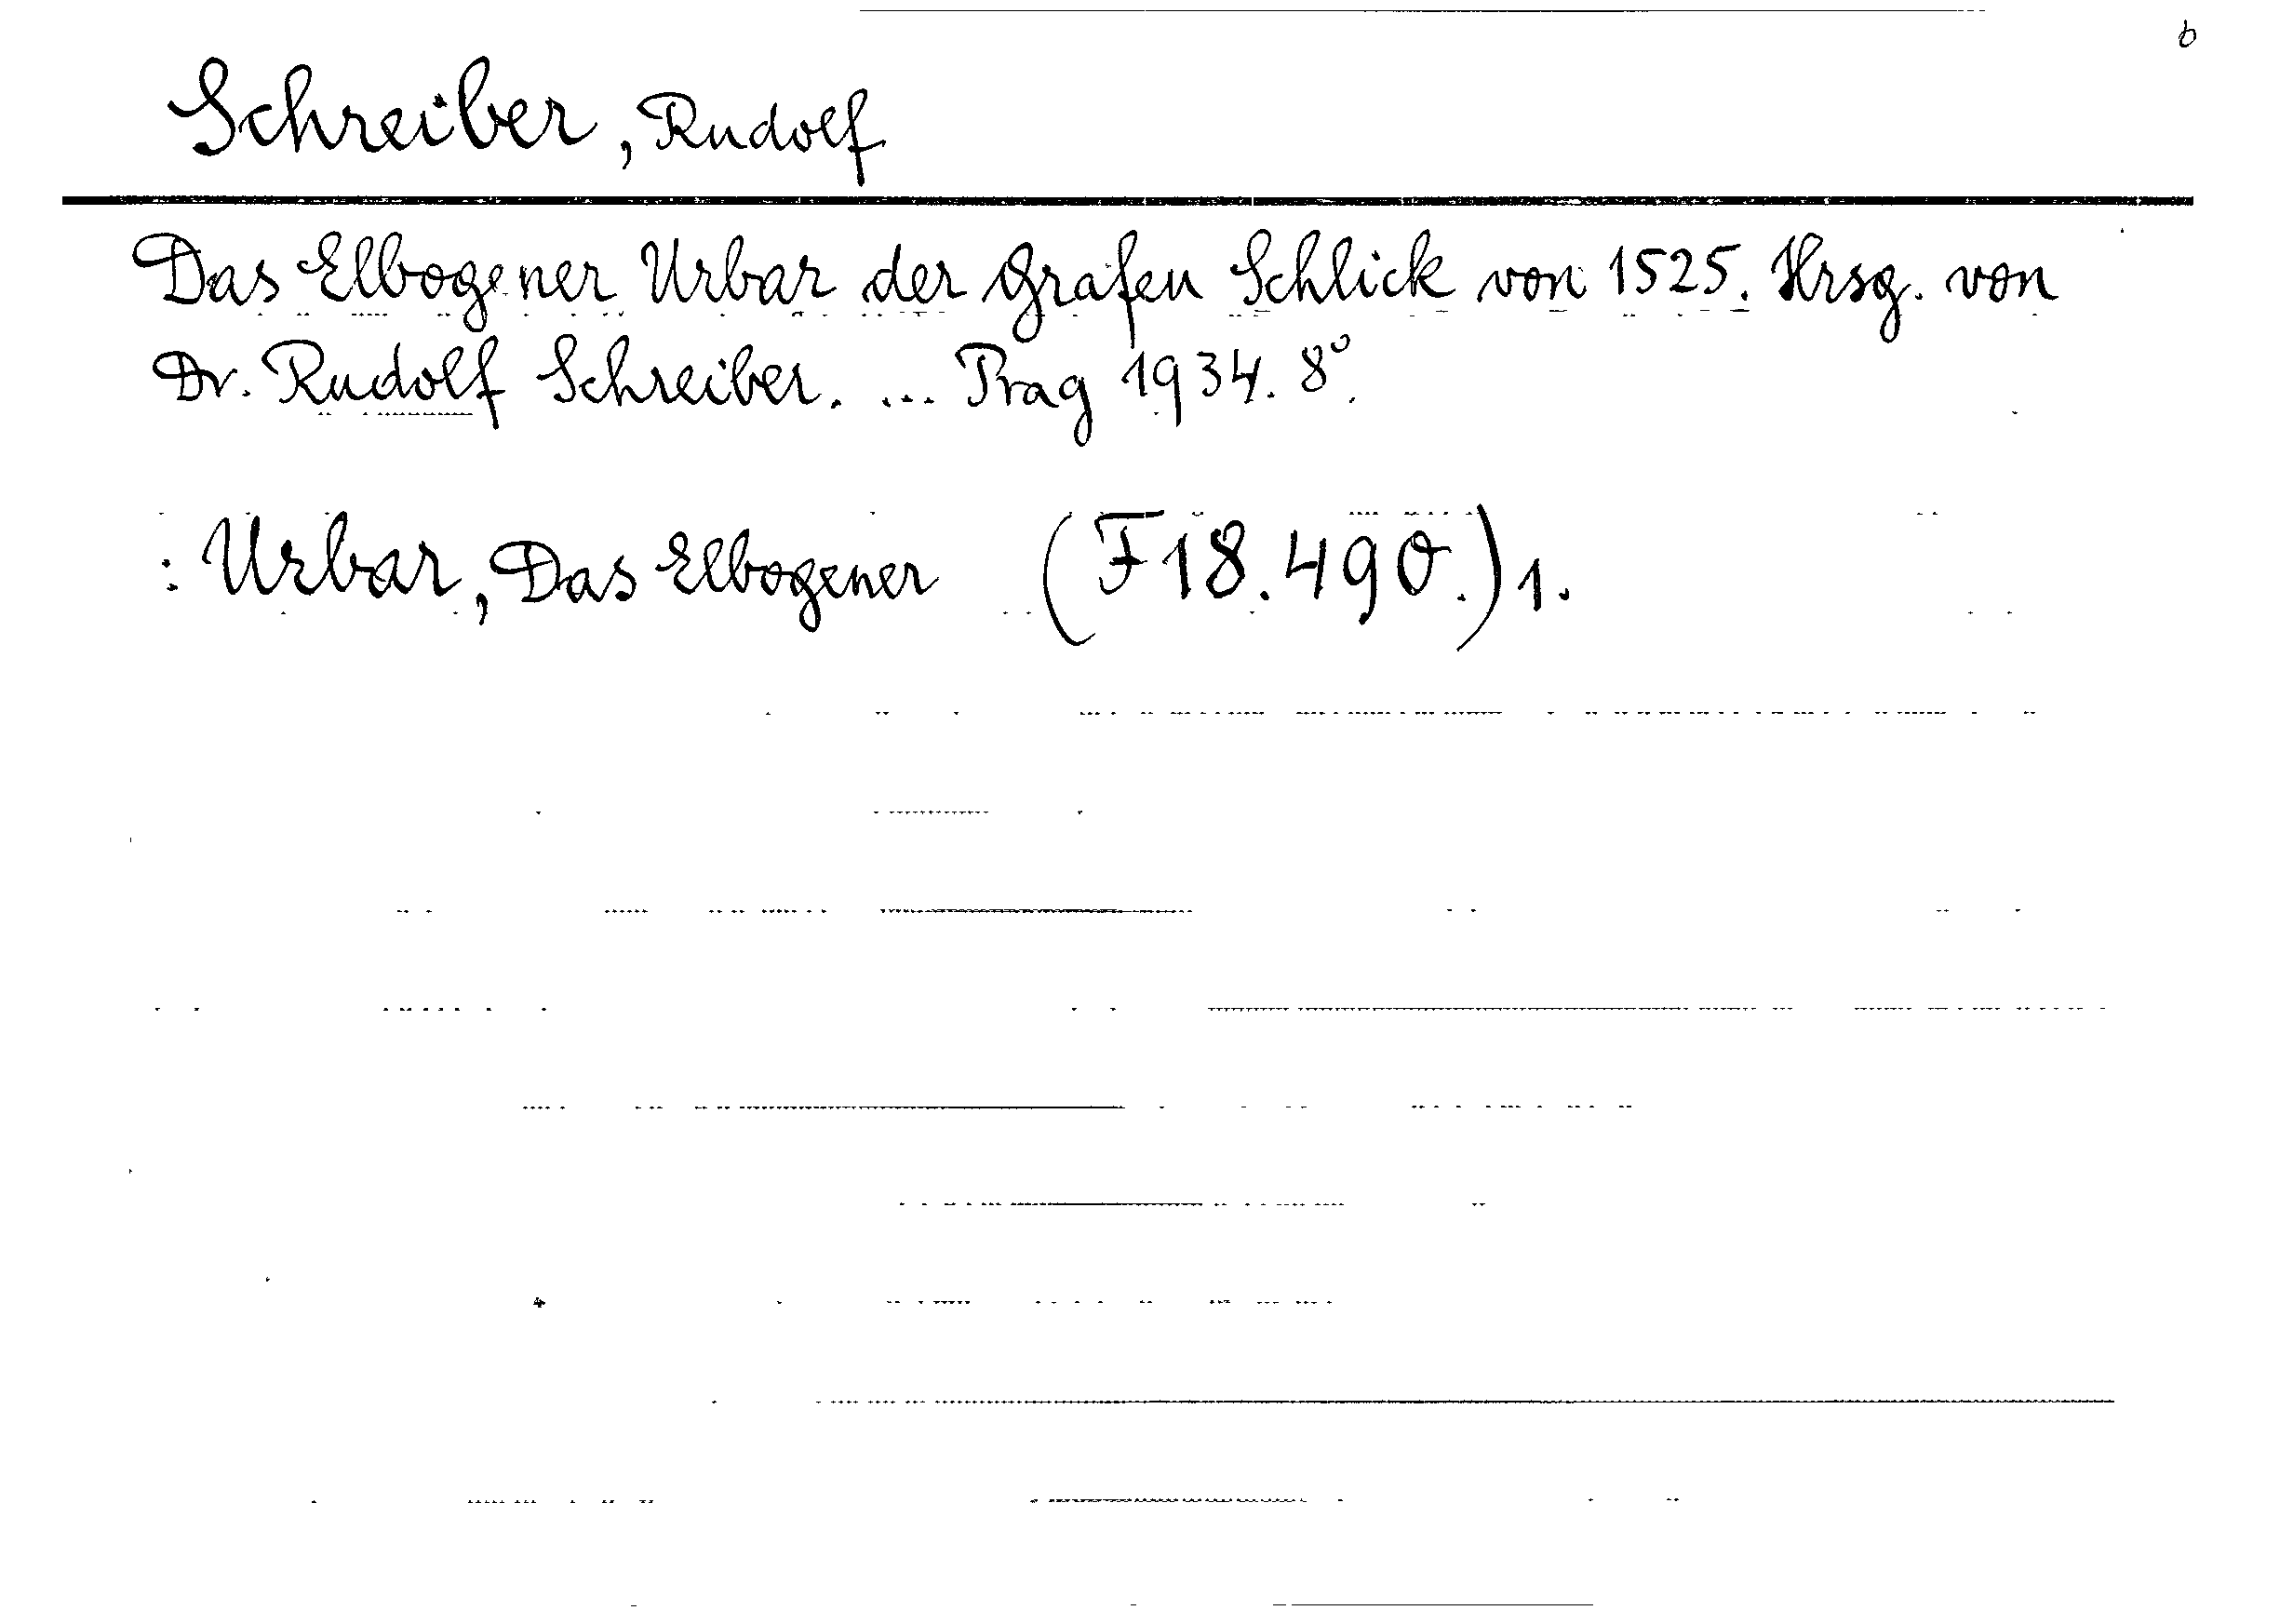 b
Schreiber, Rudolf
Das Elbogener Urbar der Grafen Schlick von 1525. Hrsg. von
Dr. Rudolf Schreiber. ... Prag 1934. 8°.
: Urbar, Das Elbogener (F18.490.)1.